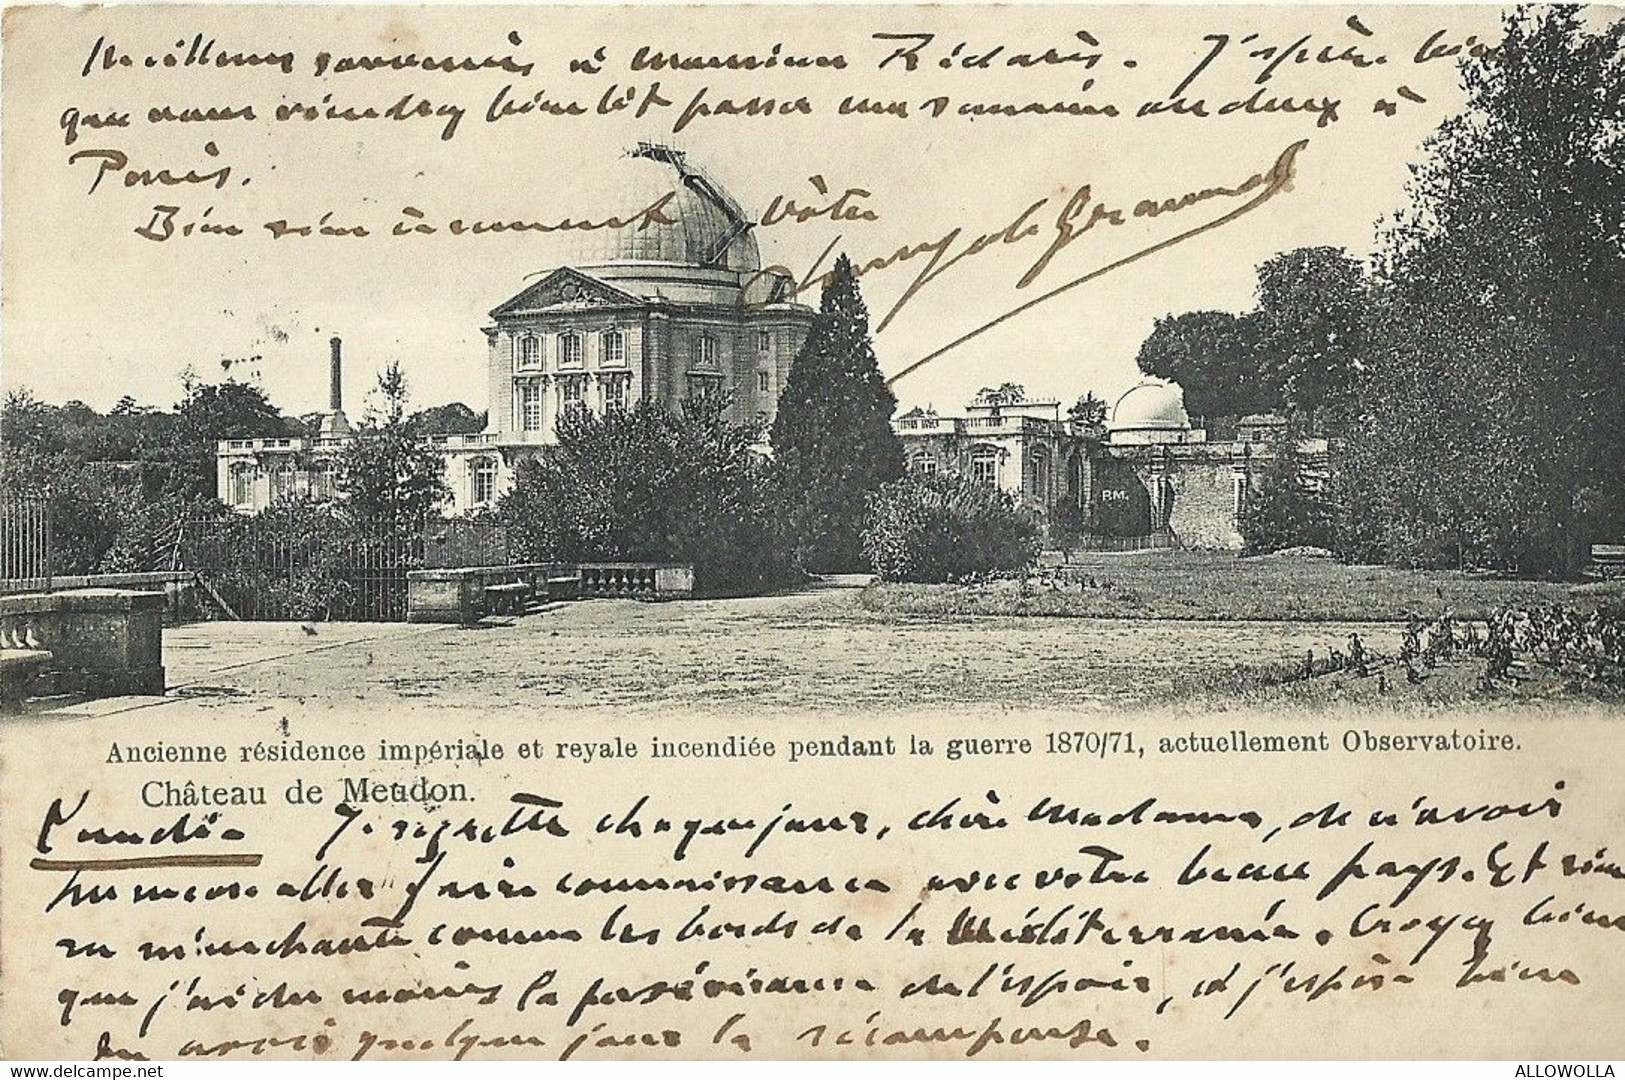 Meilleurs souvenirs à monsieur Ridarès. J'espère bien
que vous viendrez bientôt passer une semaine ou deux à
Paris.
Bien sincèrement vôtre
RM.
Ancienne résidence impériale et reyale incendiée pendant la guerre 1870/71, actuellement Observatoire.
Château de Meudon.
Je regrette chaque jour, chère Madame, de n'avoir
pu encore aller faire connaissance avec votre beau pays. Et rien
ne m'enchante comme les bords de la Méditerranée. Croyez bien
que j'ai du moins la persévérance de l'espoir, et j'espère bien
en avoir quelque jour la récompense.
ALLOWOLLA